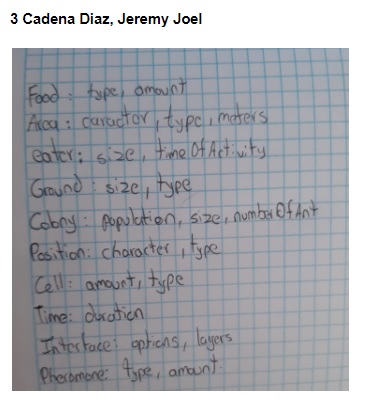 3 Cadena Diaz, Jeremy Joel
Food : type, amount
Area : caractor, type, meters
eater: size, time Of Activity
Ground : size, type
Colony : population, size, number Of Ant
Position: character, type
Cell: amount, type
Time: duration
Interface: options, layers
Pheromone: type, amount.